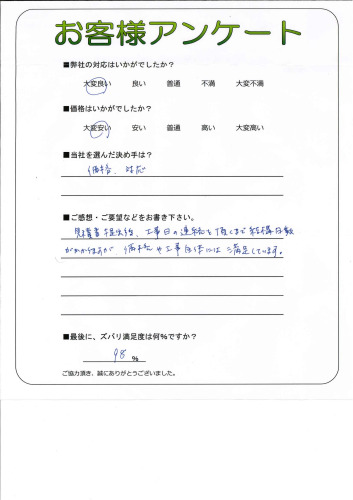 お客様アンケート
■弊社の対応はいかがでしたか?
大変良い 良い 普通 不満 大変不満
■価格はいかがでしたか?
大変安い 安い 普通 高い 大変高い
■当社を選んだ決め手は?
価格、対応
■ご感想・ご要望などをお書き下さい。
見積書提出後、工事日の連絡を頂くまで結構日数
がかかりますが 価格や工事自体には満足しています。
■最後に、ズバリ満足度は何%ですか?
98 %
ご協力頂き、誠にありがとうございました。